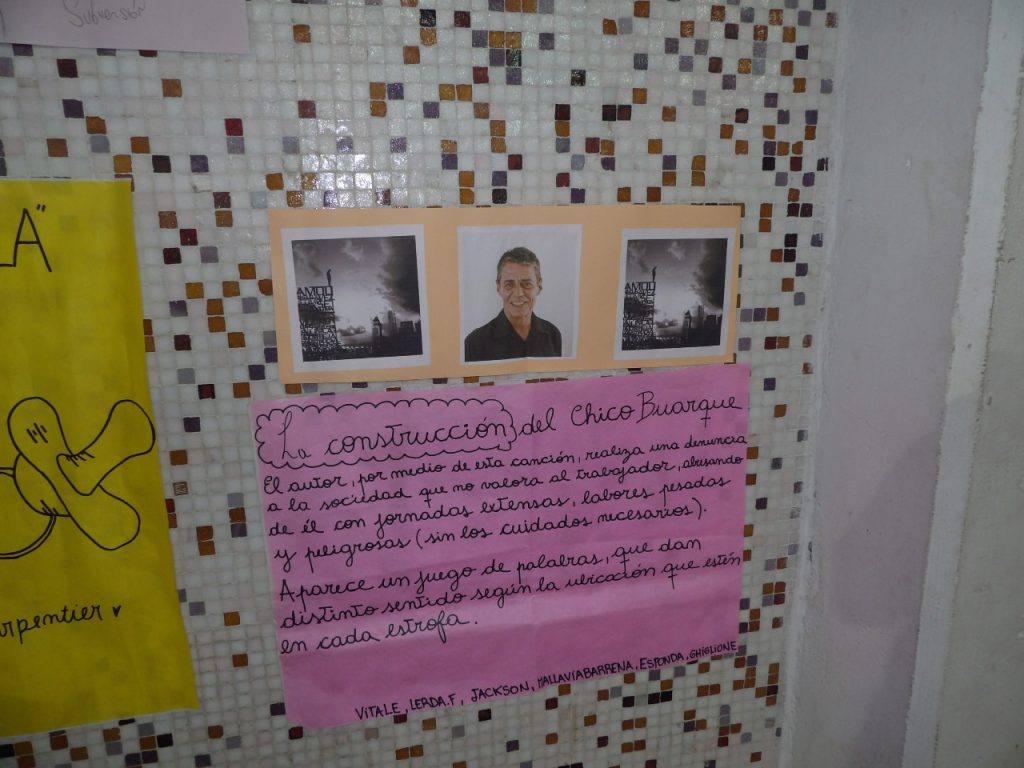 Subversión
A"
La construcción del Chico Buarque
El autor, por medio de esta canción, realiza una denuncia
a la sociedad que no valora al trabajador, abusando
de él con jornadas extensas, labores pesadas
y peligrosas (sin los cuidados necesarios).
Aparece un juego de palabras, que dan
distinto sentido según la ubicación que estén
en cada estrofa.
VITALE, LERDA.F, JACKSON, MALLAVIABARRENA, ESPONDA, GHIGLIONE
arpentier